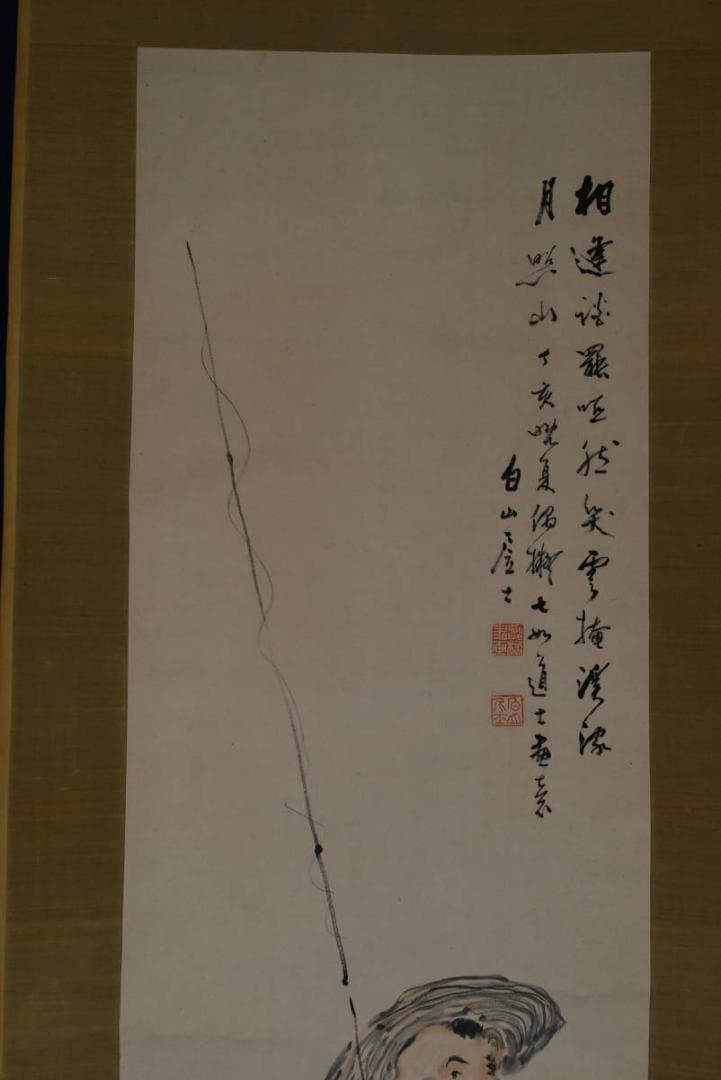 相逢罷啞然笑雲掩溪
月照山丁亥晩夏偶擬七如道士畫意
白山居士